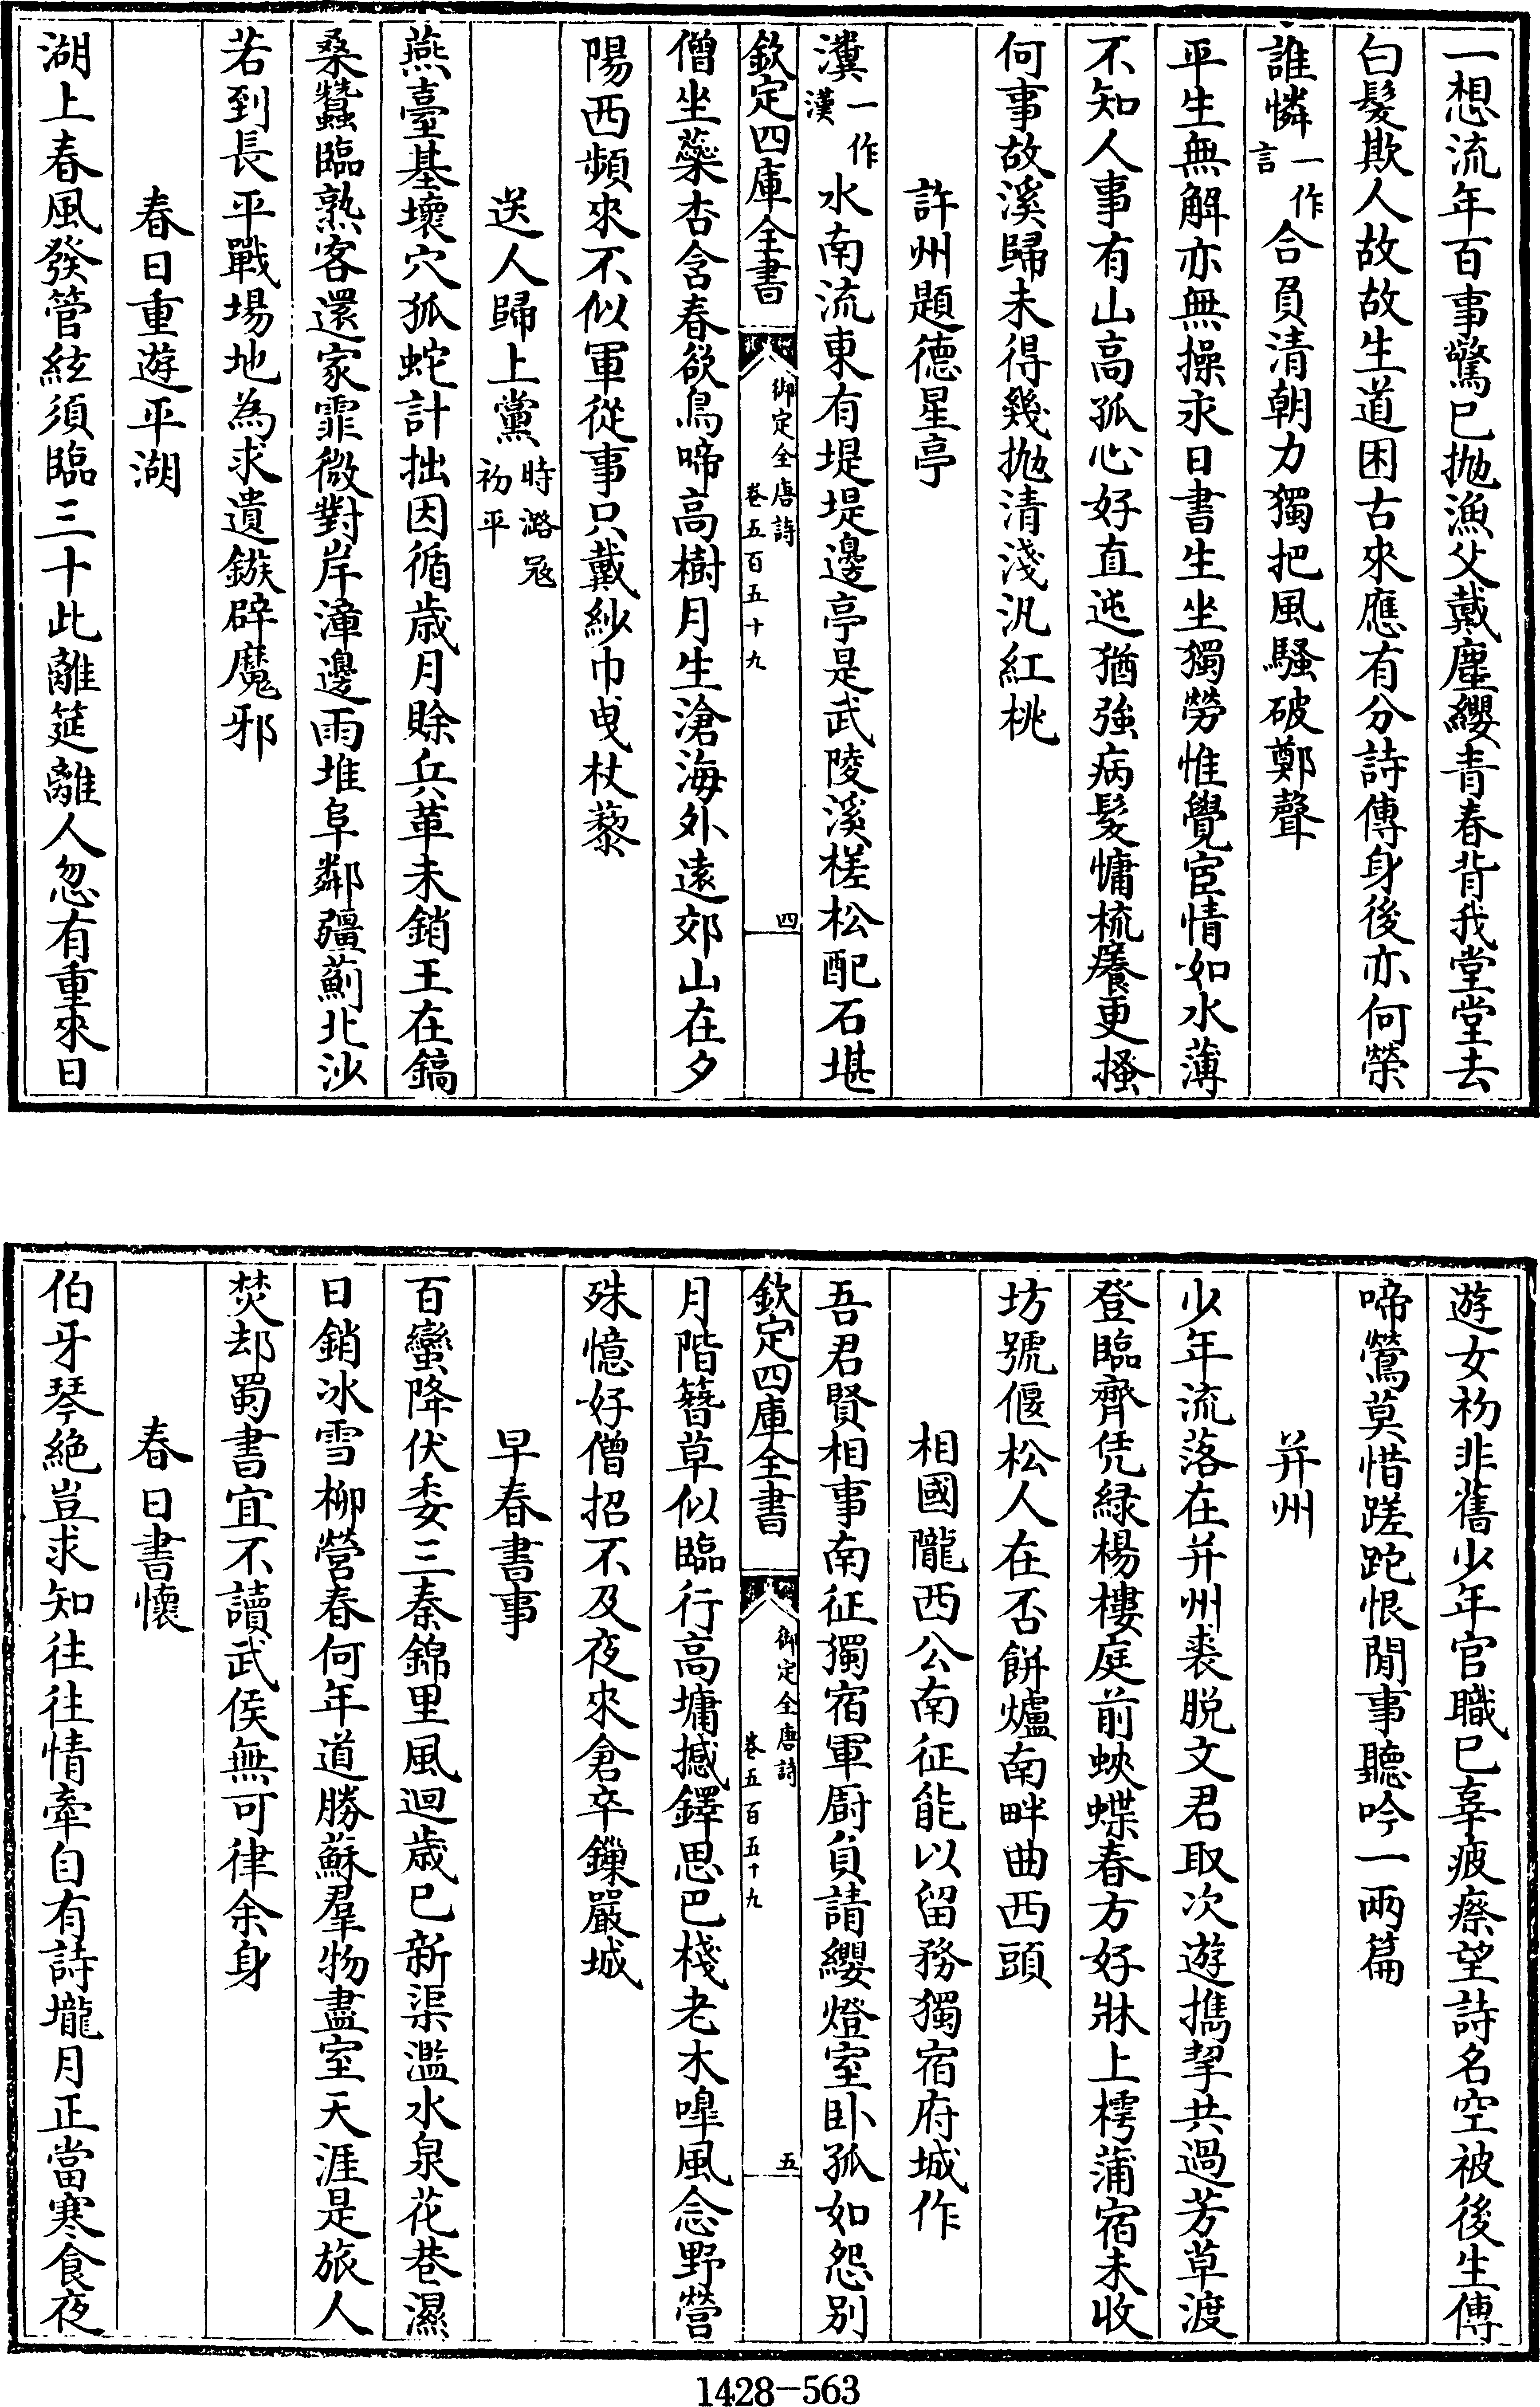 一想流年百事驚已抛漁父戴塵纓青春背我堂堂去
白髪欺人故故生道困古來應有分詩傳身後亦何榮
誰憐一作言合負清朝力獨把風騷破鄭聲
平生無解亦無操永日書生坐獨勞惟覺宦情如水薄
不知人事有山高孤心好直迍猶強病髪慵梳癢更搔
何事故溪歸未得幾抛清淺汎紅桃
許州題德星亭
瀵一作漢水南流東有堤堤邊亭是武陵溪槎松配石堪
欽定四庫全書 御定全唐詩 卷五百五十九 四
僧坐蘂杏含春欲鳥啼高樹月生滄海外遠郊山在夕
陽西頻來不似軍從事只戴紗巾曳杖藜
送人歸上黨時潞冦初平
燕臺基壞穴狐蛇計拙因循歳月賒兵革未銷王在鎬
桑蠶臨熟客還家霏微對岸漳邊雨堆阜鄰疆薊北沙
若到長平戰場地為求遺鏃辟魔邪
春日重遊平湖
湖上春風發管絃須臨三十此離筵離人忽有重來日
遊女初非舊少年官職已辜疲瘵望詩名空被後生傳
啼鶯莫惜蹉跎恨閒事聽吟一兩篇
并州
少年流落在并州裘脱文君取次遊攜挈共過芳草渡
登臨齊凭綠楊樓庭前蛺蝶春方好牀上樗蒲宿未收
坊號偃松人在否餅爐南畔曲西頭
相國隴西公南征能以留務獨宿府城作
吾君賢相事南征獨宿軍厨負請纓燈室卧孤如怨别
欽定四庫全書 御定全唐詩 卷五百五十九 五
月階簪草似臨行高墉撼鐸思巴棧老木嘷風念野營
殊憶好僧招不及夜來倉卒鏁嚴城
早春書事
百蠻降伏委三秦錦里風迴歳已新渠濫水泉花巷濕
日銷冰雪柳營春何年道勝蘇羣物盡室天涯是旅人
焚却蜀書宜不讀武侯無可律余身
春日書懷
伯牙琴絶豈求知往往情牽自有詩壠月正當寒食夜
1428－563